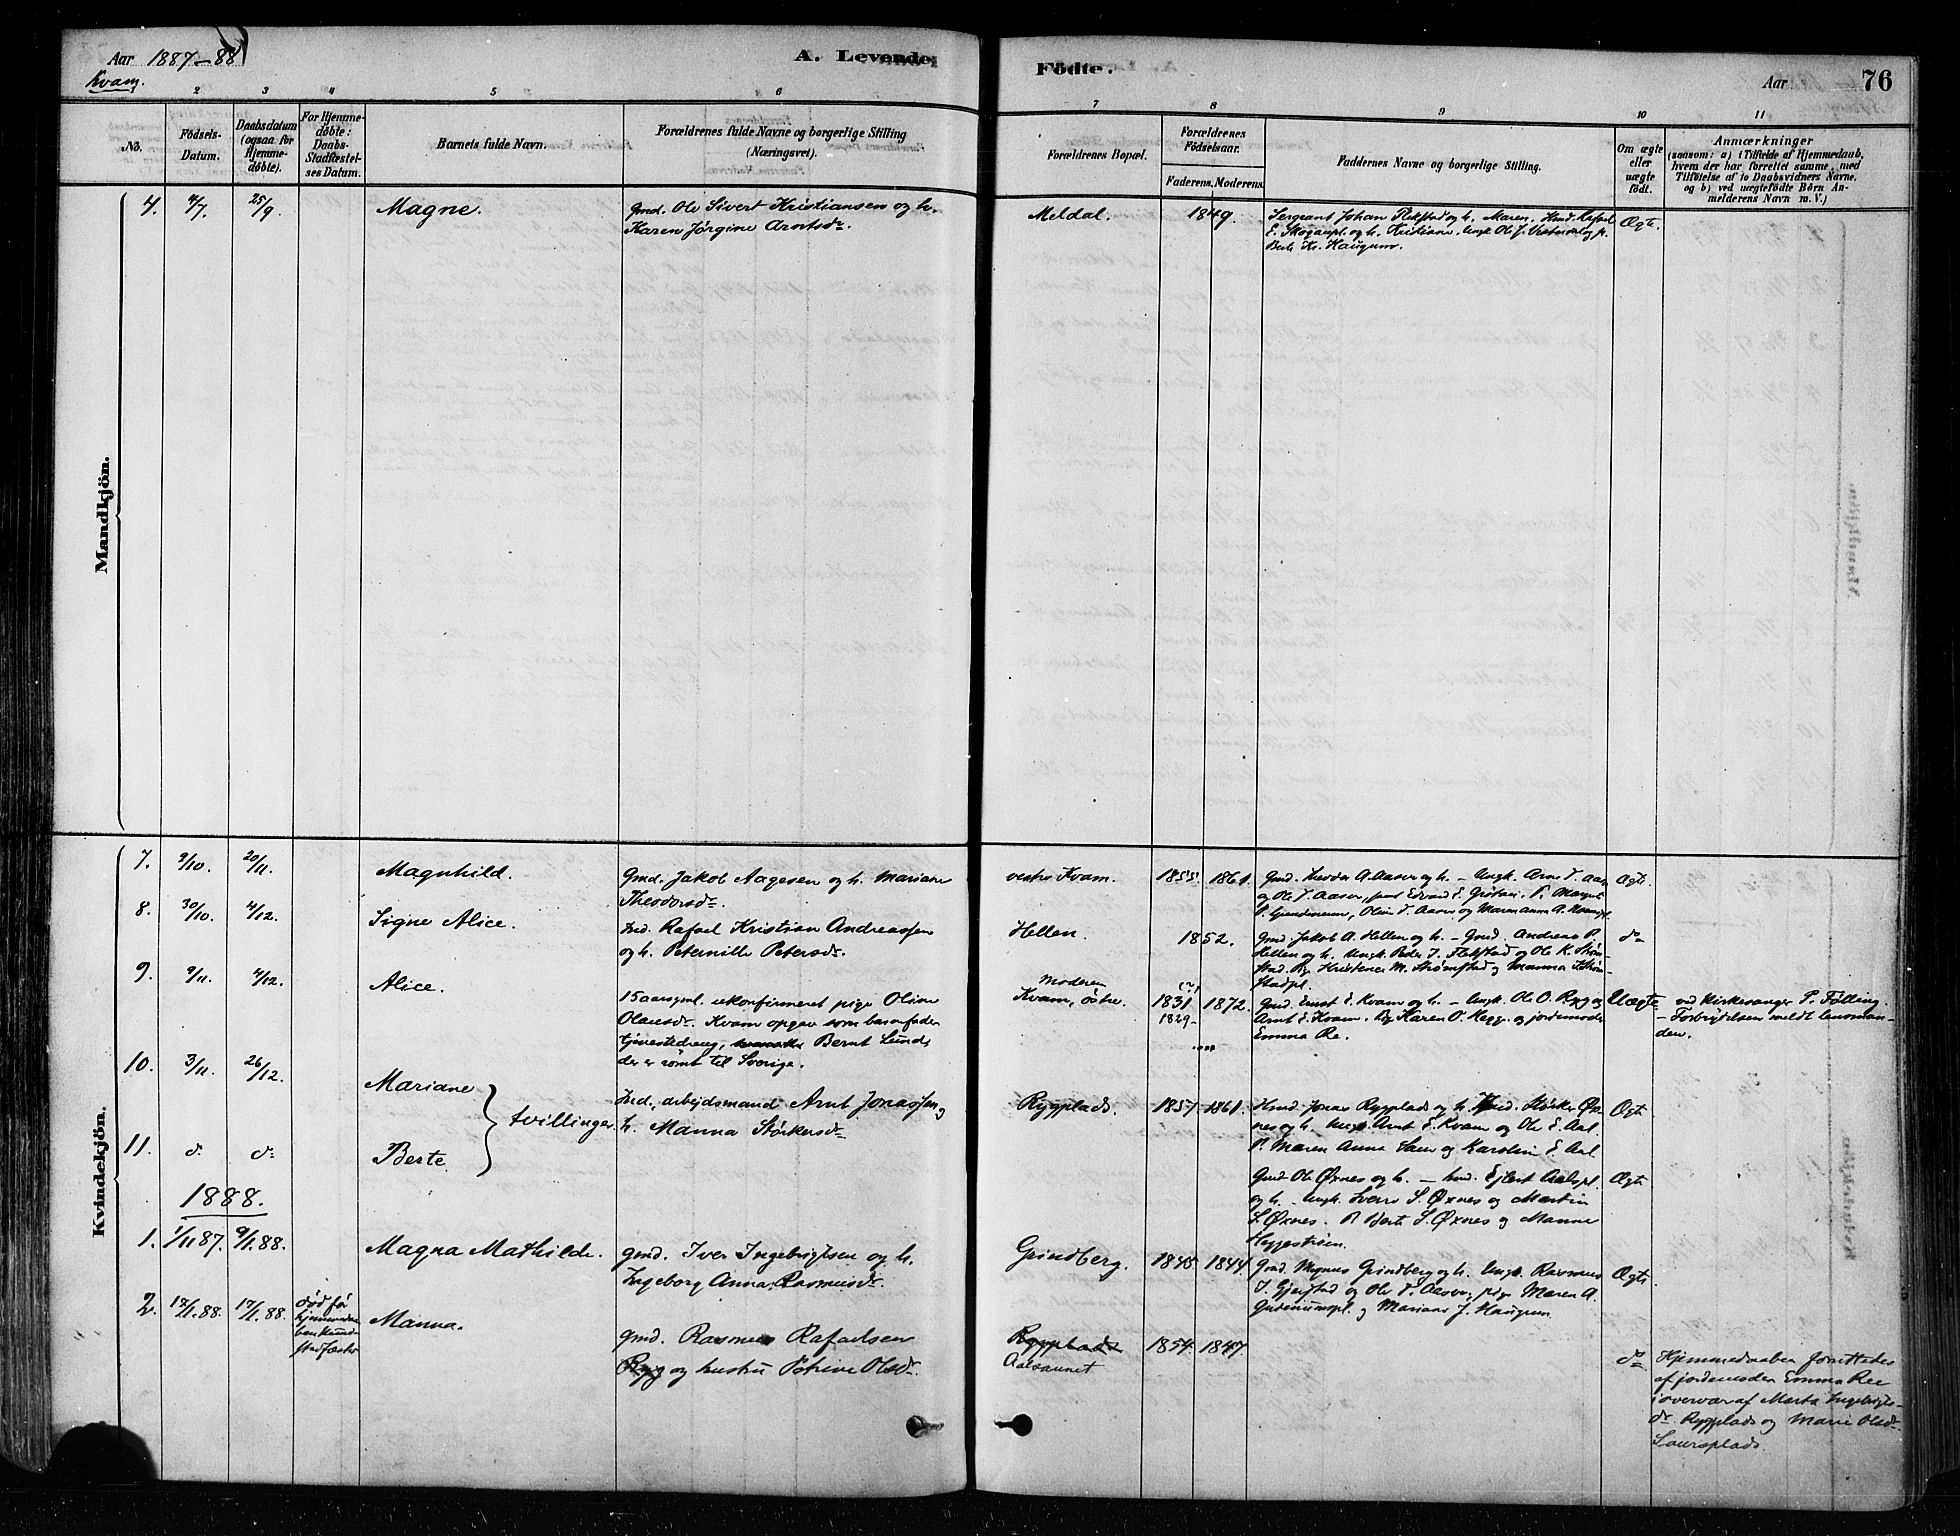 Aar 1887-88
Kvam.
A. Levende
Födte.
Aar
76
2 3 4 5 6 7 8 9 10 11
No.
Födsels-
Datum.
Daabsdatum
(ogsaa for
Hjemme-
döbte).
For Hjemme-
döbte:
Daabs-
Stadfæstel-
ses Datum.
Barnets fulde Navn.
Forældrenes fulde Navne og borgerlige Stilling
(Næringsvei).
Forældrenes Bopæl.
Forældrenes
Födselsaar.
Faderens. Moderens.
Faddernes Navne og borgerlige Stilling.
Om ægte
eller
uægte
födt.
Anmærkninger
(saasom: a) i Tilfælde af Hjemmedaab,
hvem der har forrettet samme, med
Tilföielse af to Daabsvidners Navne,
og b) ved uægtefödte Börn An-
melderens Navn m. V.)
Mandkjön.
4. 4/7. 25/9. Magne. Gmd. Ole Sivert Kristiansen og h.
Karen Jørgine Arntsdr.
Meldal. 1849. Sergeant Johan Flekstad og h. Maren.
E. Skogaupl. og h. Kristiane. Ungk. Ole J.
Berte Kr. Haugum.
Ægte.
Kvindekjön.
7. 9/10. 20/11. Magnhild. Gmd. Jakob Aagesen og h. Mariane
Theodorsdr.
vestre Kvam. 1855. 1861. Gmd. Theodor A. Aasve og h. - Ungk. Arne T. Aas
og Ole T. Aasve, Edvard E. Grøtan. P. Margrete
Oline T. Aasve og Marenanna A.
Ægt.
8. 30/10. 4/12. Signe Alice. Ind. Rafael Kristian Andreassen
og h. Peternille Petersdr.
Hellen. 1852. Gmd. Jakob A. Hellen og h. - Gmd. Andreas P.
Hellen og h. Ungk. Peder J. Flekstad og Ole K. Strøm-
stad. Pg. Kristense M. Strømstad og Manna
stadpl.
do
9. 9/11. 4/12. Alice. 15 aarsgml. ukonfirmeret pige Oline
Olausdr. Kvam opgav som barnefader
tjenestedreng, Bernt Lund,
der er rømt til Sverige.
Moderen
Kvam, østre. 1831. 1872.
1829
Gmd. Ernst E. Kvam og h. - Ungk. Ole O. Ryg og
Arnt E. Kvam. Pg. Karen O. Hegg. og jordemoder
Emma Re.
Uægte. ved kirkesanger P. Følling.
- Forbrydelsen meldt lensman-
den.
10. 3/11. 26/12. Mariane
tvillinger. Ind., arbejdsmand Arnt Jonassen og
h. Manna Størkersdr.
Rygplads. 1857. 1861. Hmd. Jonas Rygplads og h. Gmd. Størker Øx-
nes og h. Ungk. Arnt E. Kvam og Ole E. Aal.
P. Maren Anna Saur og Karolin E. Aal.
Ægt.
11. d. do Berte.
Gmd. Ole Øxnes og h. - hmd. Ejlert Aalspl.
og h. - Ungk. Sverre S. Øxnes og Martin
S. Øxnes. P. Berte S. Øxnes og Manna
Heggestrøen.
Ægt.
1888.
1. 1/11 87. 9/1 88. Magna Mathilde. gmd. Iver Ingebrigtsen og h.
Ingeborg Anna Rasmusdr.
Grindberg. 1845. 1844. Gmd. Magnus Grindberg og h. Ungk. Rasmus
I. Gjeistad og Ole T. Aasve, pige Maren A.
og Mariane J. Haugum.
Ægt.
2. 12/1. 88. 17/1. 88. død før
hjemmedaa-
ben kunde
stadfæstes
Manna. gmd. Rasmus Rafaelsen
Ryg og hustru Petrine Olsdr.
Rygplads
Aalsaunet
1854. 1847. do Hjemmedaaben forrettedes
af jordemoder Emma Ree
i overvær af Marta Ingebrigts-
dr. Rygplads og Marie Olsdr.
Saursplads.